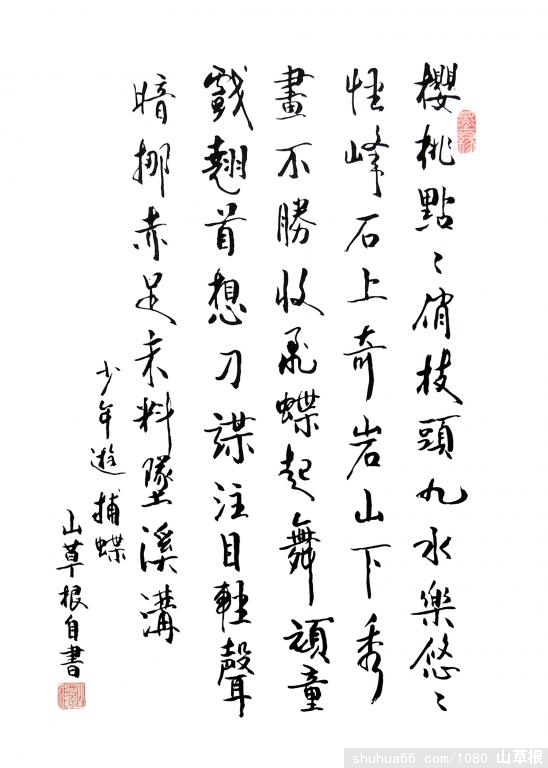 櫻桃點〻俏枝頭九水樂悠〻
怪峰石上奇岩山下秀
畫不勝收飛蝶起舞頑童
戲翹首想刁謀注目輕聲
暗挪赤足未料墜溪溝
少年遊 捕蝶
山草根自書
shuhua66.com/1080 山草根